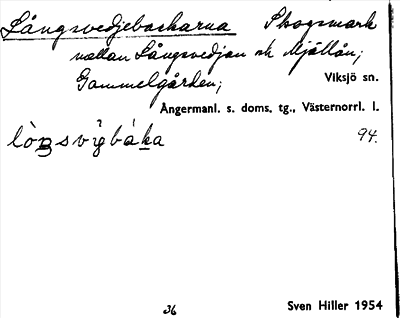 Långsvedjebackarna Skogsmark
mellan Långsvedjan och Mjällån;
Gammelgården; Viksjö sn.
Ångermanl. s. doms. tg., Västernorrl. l.
94.
36 Sven Hiller 1954